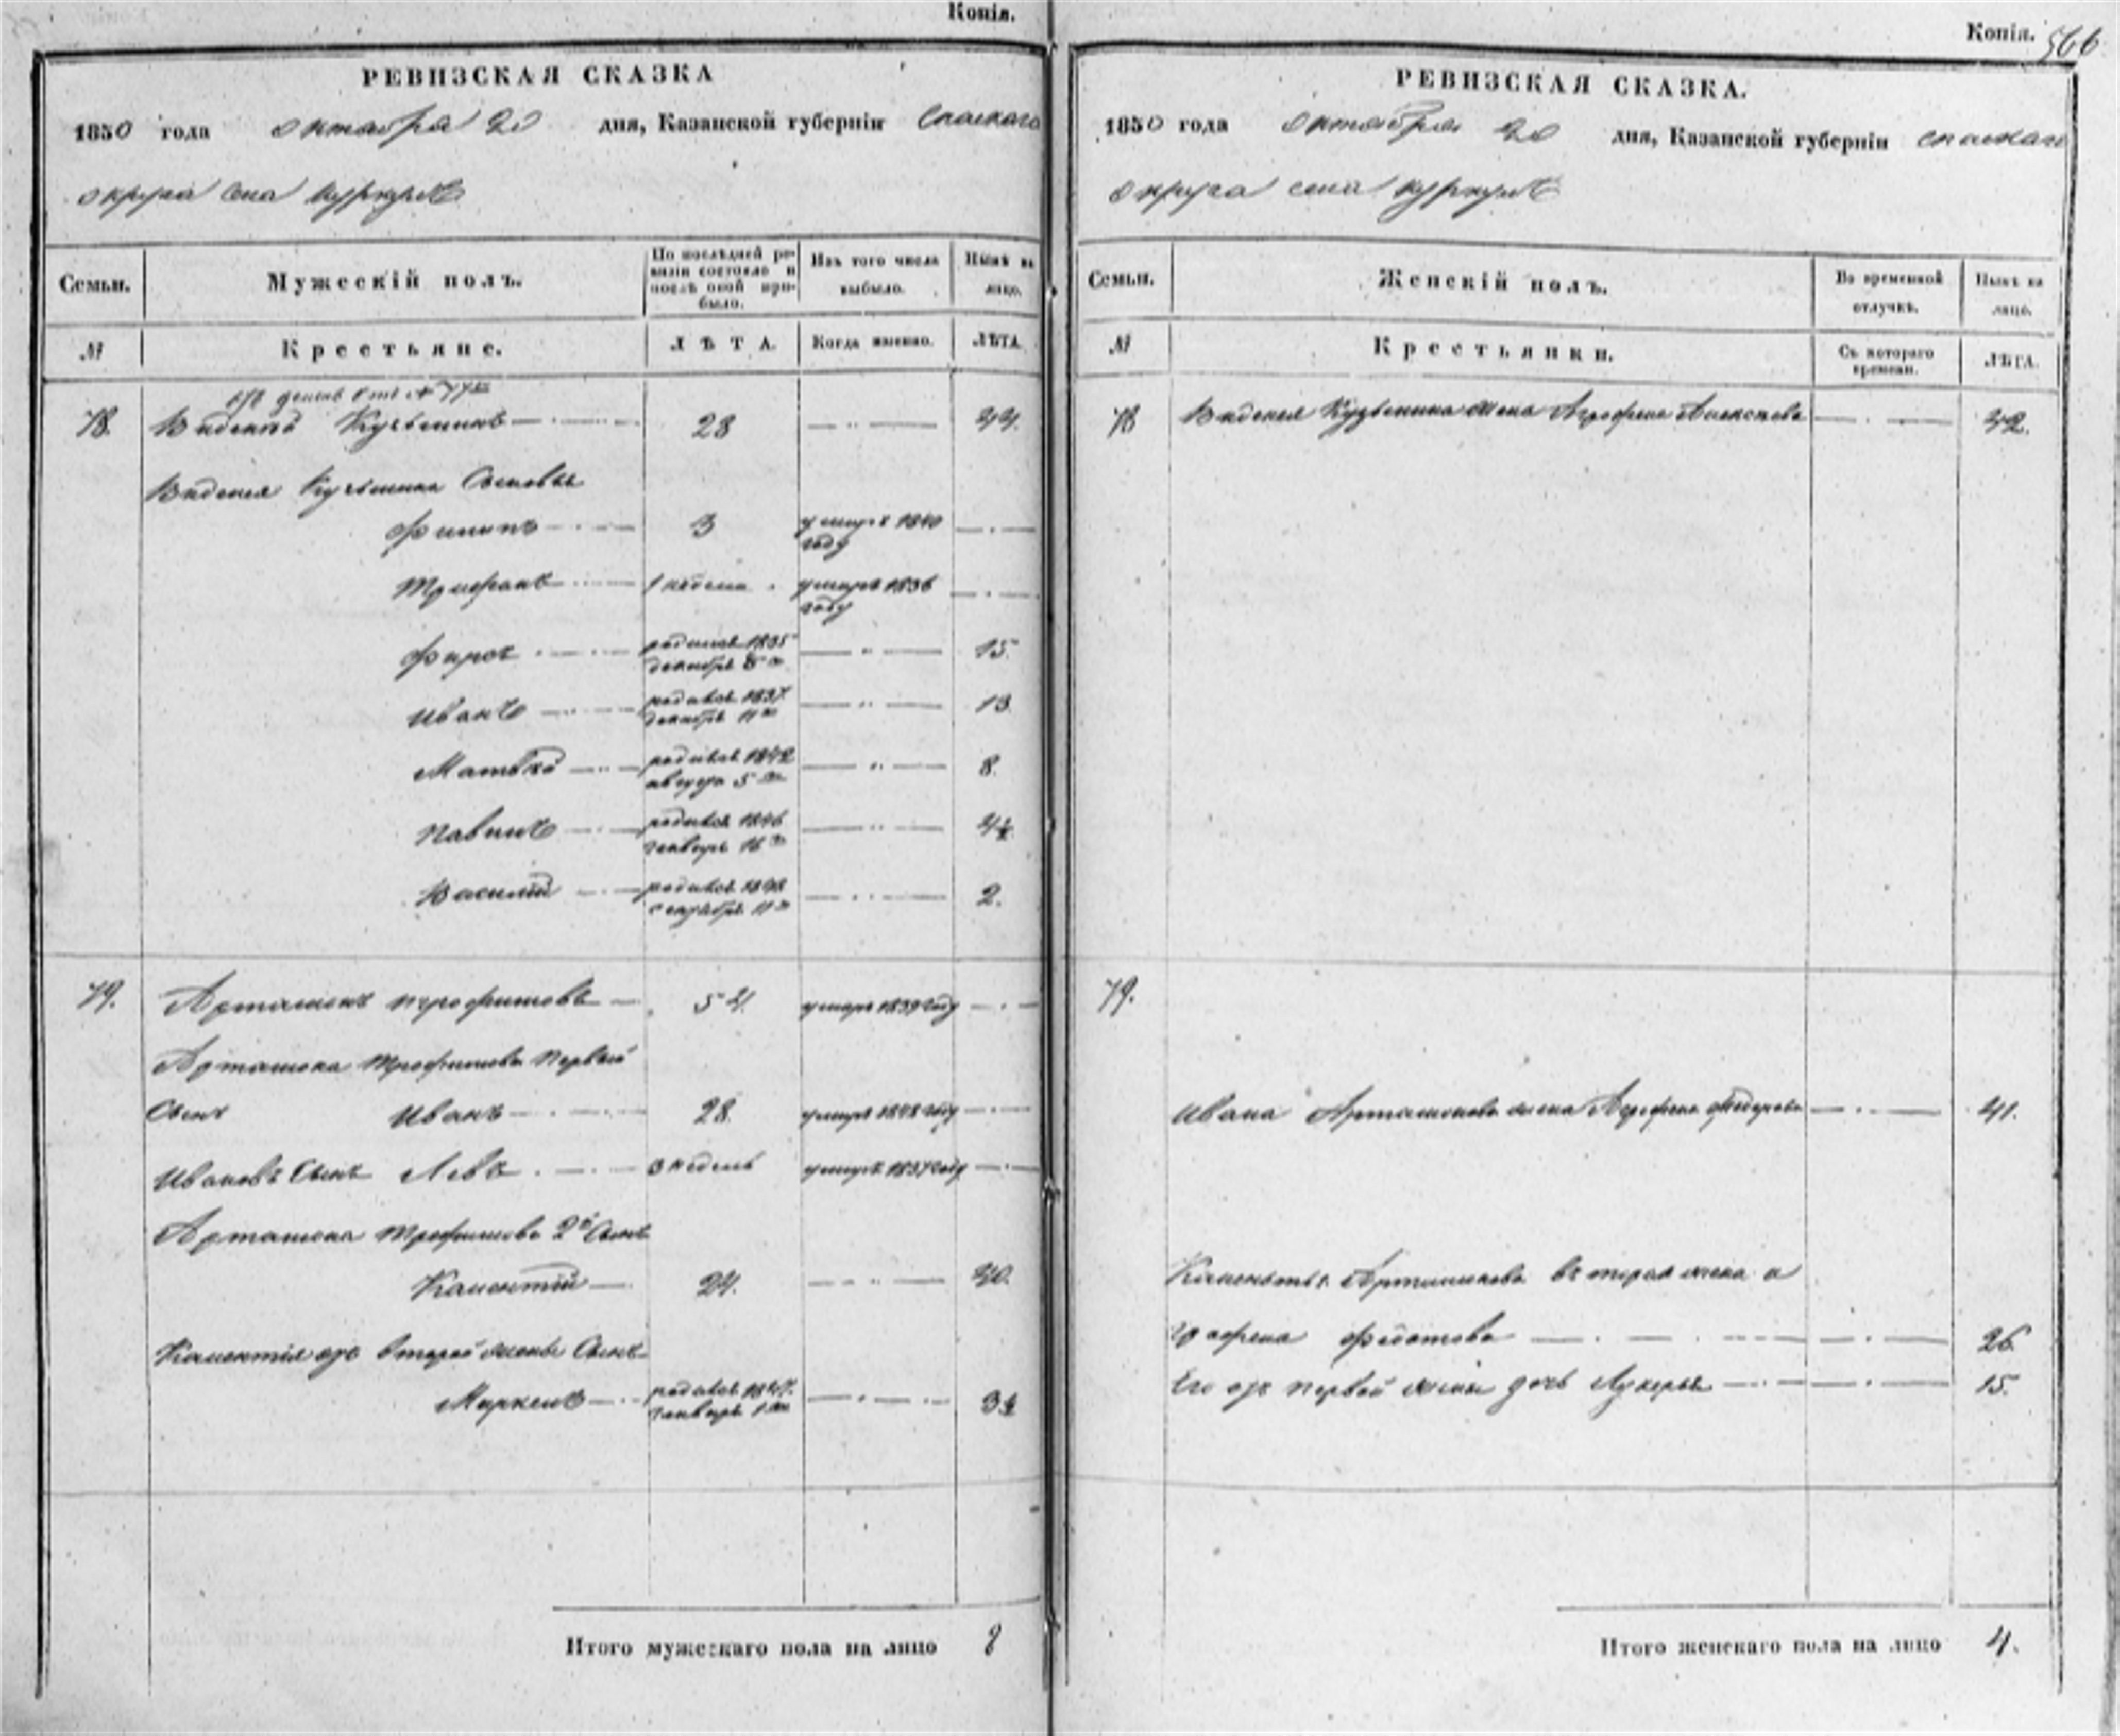 Копія.
РЕВИЗСКАЯ СКАЗКА
1850 года октября 20 дня, Казанской губерніи Спаского
округа села
Семьи.
Мужескій полъ.
По послѣдней ревизіи состояло и послѣ оной прибыло.
Изъ того числа выбыло.
Нынѣ на лицо.
№
Крестьяне.
ЛѢТА.
Когда именно.
ЛѢТА.
78. Кузьминъ 28 44.
Кузьмина Сыновья
Филипъ 3 умеръ 1840 году
Трифонъ 1 неделя умеръ 1836 году
Фирсъ родился 1835 декабря 15.
Иванъ родился 1837 декабря 11 13
Матвей родился 1842 августа 5 8.
Павилъ родился 1846 генваря 16 4
Василій родился 1848 сентября 11 2.
79. Артамонъ Трофимовъ 54. умеръ 1839 году
Артамона Трофимова первой
Сынъ Иванъ 28. умеръ 1848 году
Ивановъ Сынъ Левъ 3 недель умеръ 1837 году
Артамона Трофимова 2й Сынъ
24. 40.
второй жены Сынъ
родился 1847. генваря 1 3
Итого мужескаго пола на лицо 8
Копія. 566
РЕВИЗСКАЯ СКАЗКА.
1850 года октября 20 дня, Казанской губерніи спаскаго
округа села
Семьи.
Женскій полъ.
Во временной отлучкѣ.
Нынѣ на лицо.
№
Крестьянки.
Съ котораго времени.
ЛѢТА.
78 Кузьмина жена Агрофена 42.
79.
Ивана Артамонова жена Агрофена Федорова 41.
Артамонова вторая жена а
грофена Федотова 26.
Его первой жены дочь Лукерья 15.
Итого женскаго пола на лицо 4.